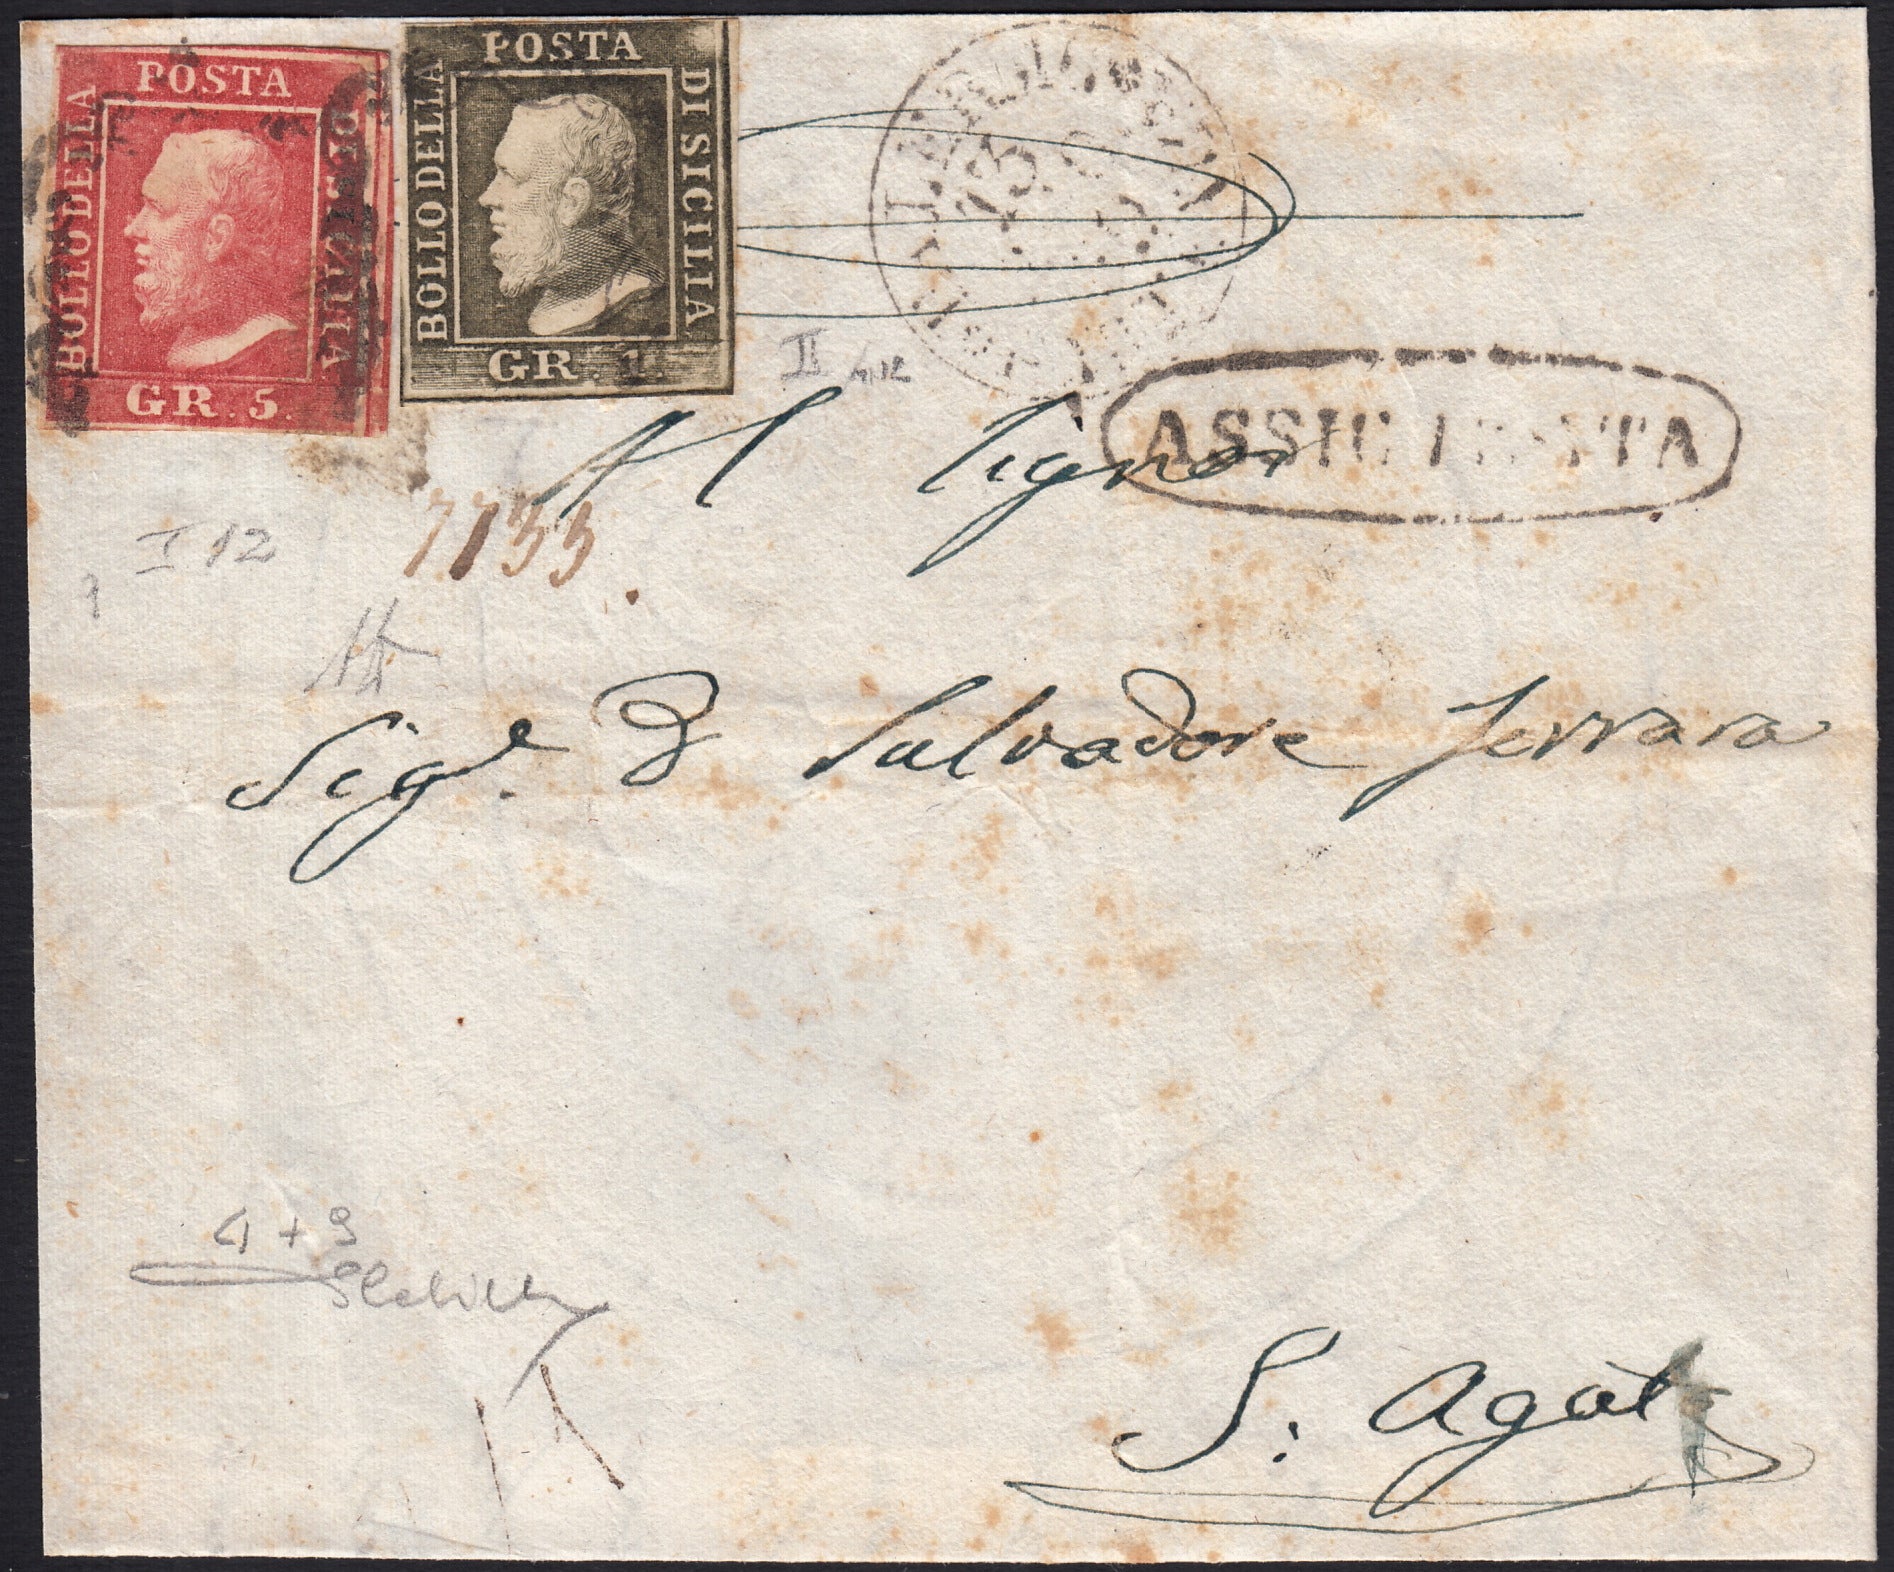 POSTA
BOLLO DELLA
DI SICILIA
GR. 5.
POSTA
BOLLO DELLA
DI SICILIA
GR. 1.
13
II
I 12
7733
Al Signor
Sigre D Salvadore Ferrara
4 + 9
S. Agata